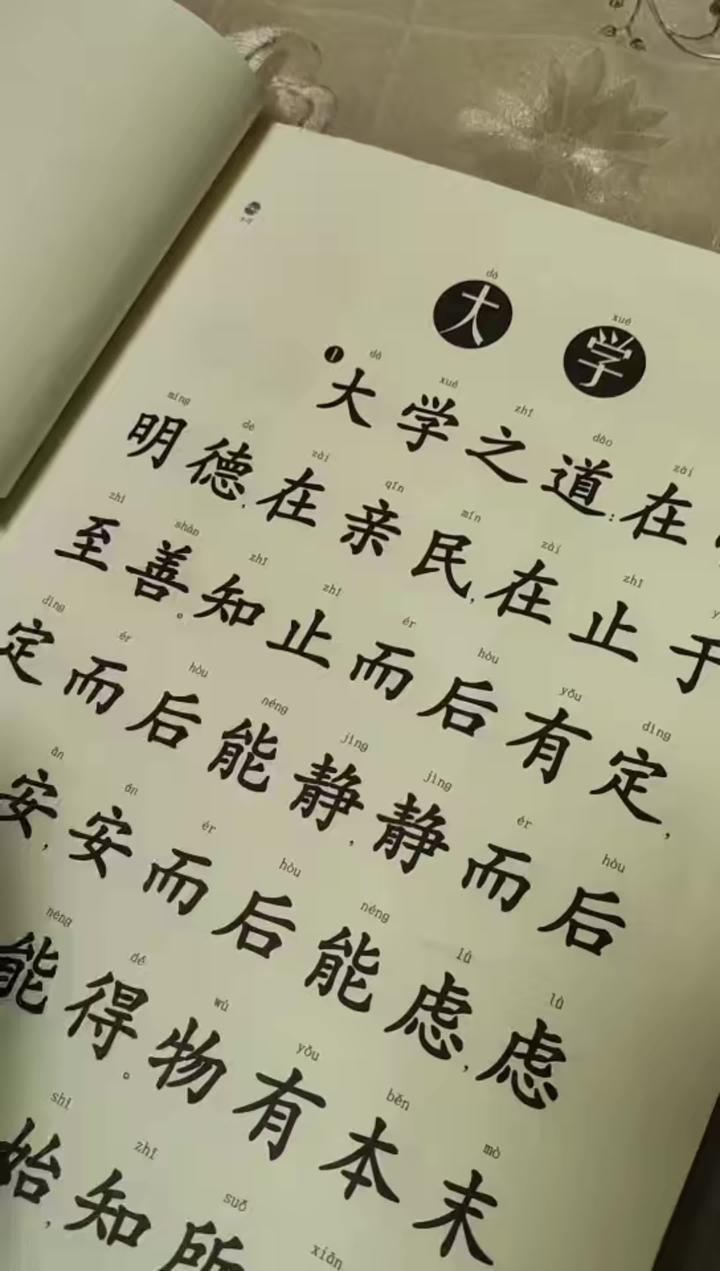 dà xué
大学
dà xué zhī dào zài
1 大学之道:在
míng dé zài qīn mín zài zhǐ
明德,在亲民,在止于
zhì shàn zhī zhǐ ér hòu yǒu dìng
至善。知止而后有定,
dìng ér hòu néng jìng jìng ér hòu
定而后能静,静而后
ān ān ér hòu néng lǜ lǜ
安,安而后能虑,虑
néng dé wù yǒu běn mò
能得。物有本末
shǐ zhī suǒ xiān
始,知所